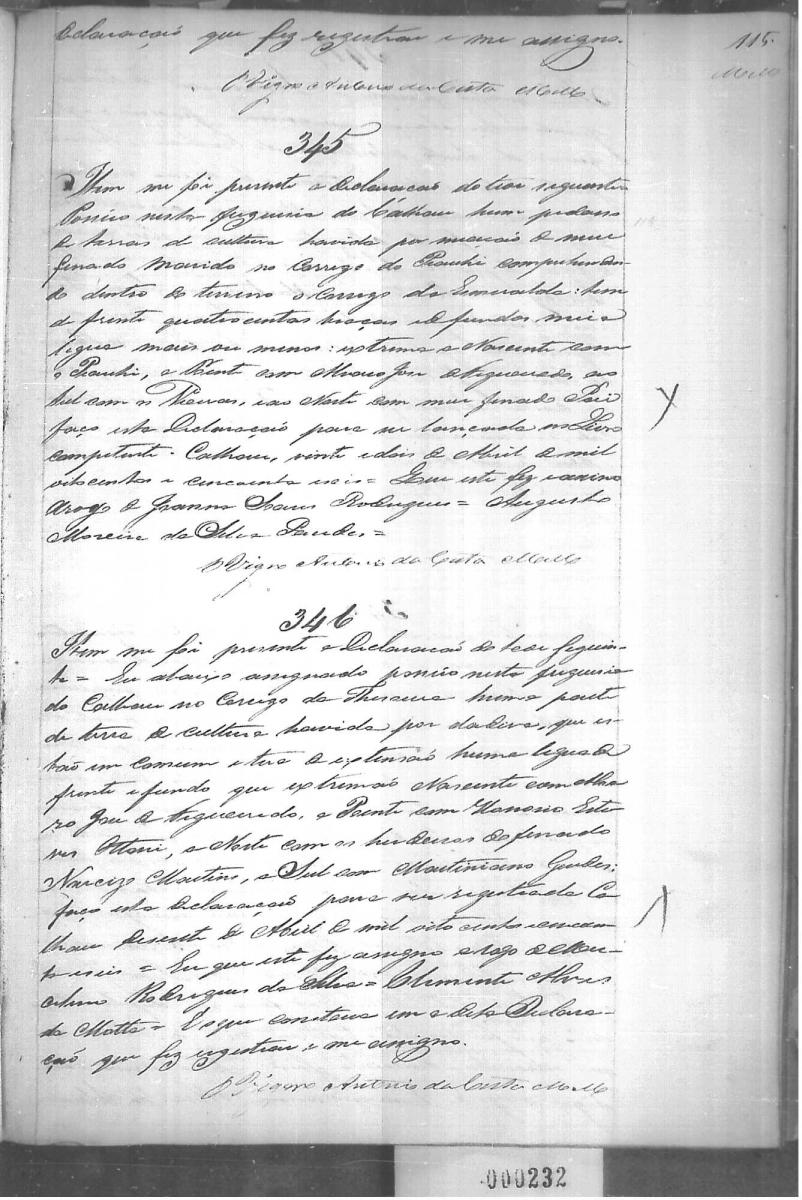 Declaração que fiz registrar e me assigno.
115.
Mello
O Vigrо Antonio da Costa Mello
345
Item me foi presente a Declaração do teor seguinte
Possuo nesta freguesia do Calhau hum pedasso
de terras de cultura havida por meação de meu
finado Marido no Corrego do Piauhi comprehenden-
do dentro do terreno o Corrego da Esmeralda: tem
de frente quatrocentas braças e de fundos meia
legua mais ou menos: extrema a Nascente com
o Piauhi, a Poente com Alvaro Jose de Figueredo, ao
Sul com os, e ao Norte com meu finado Pai
faço esta Declaração para ser lançada no Livro
competente. Calhau, vinte e dois de Abril de mil
oitocentos e cincoenta e seis = Que este fiz e assino
arogo de Joanna Rodrigues = Augusto
Moreira da Silva =
O Vigrо Antonio da Costa Mello
346
Item me foi presente a Declaração do teor seguin-
te = Eu abaixo assignado possuo nesta freguesia
do Calhau no Corrego da huma parte
de terra de cultura havida por dadiva, que es-
tão em comum e terá de extensão huma legua de
frente e fundo que extremão Nascente com Alva
ro Jose de Figueiredo, a Poente com Honorio Este
ves Ottoni, a Norte com os herdeiros do finado
Narcizo Martins, a Sul com Martiniano Guedes;
faço esta declaração para ser registrada Ca
lhau de Abril de mil oito centos e cincoen
ta e seis = Eu que este fiz assigno a rogo de
Rodrigues da Silva = Clemente Alves
da Motta = E o que constava em a dita Declara-
ção que fiz registrar, e me assigno.
O Vigrо Antonio da Costa Mello
000232